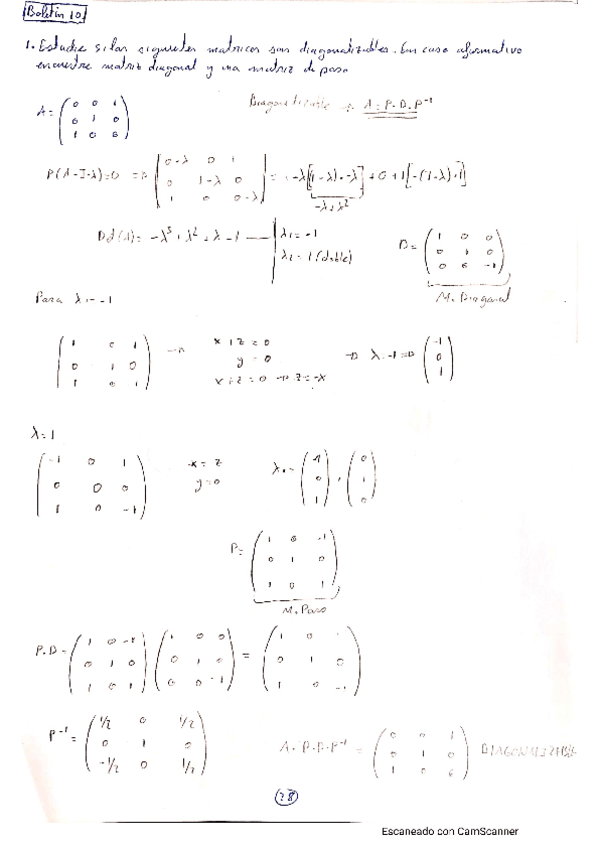 Boletín 10
1. Estudie si las siguientes matrices son diagonalizables. En caso afirmativo
encuentre matriz diagonal y una matriz de paso
A = ( 0 0 1 Diagonalizable → A = P.D.P⁻¹
0 1 0
1 0 0 )
P(A-I·λ)=0 ⇒ | 0-λ 0 1
0 1-λ 0
1 0 0-λ | = -λ[(1-λ)·-λ] + 0 + 1[-(1-λ)·1]
-λ+λ²
Det(A) = -λ³+λ²+λ-1 — | λ₁ = -1
λ₂ = 1 (doble)
D = ( 1 0 0
0 1 0
0 0 -1 )
M. Diagonal
Para λ = -1
( 1 0 1
0 1 0
1 0 1 )
x + z = 0
y = 0
x + z = 0 → z = -x
→ λ = -1 ⇒ ( -1
0
1 )
λ = 1
( -1 0 1
0 0 0
1 0 -1 )
-x = z
y = 0
( 1
0
1 ) , ( 0
1
0 )
P = ( 1 0 -1
0 1 0
1 0 1 )
M. Paso
P.D = ( 1 0 -1
0 1 0
1 0 1 ) ( 1 0 0
0 1 0
0 0 -1 ) = ( 1 0
0 1 0
1 0 -1 )
P⁻¹ = ( 1/2 0 1/2
0 1 0
-1/2 0 1/2 )
A = P.D.P⁻¹ = ( 0 0 1
0 1 0
1 0 0 ) DIAGONALIZABLE
28
Escaneado con CamScanner